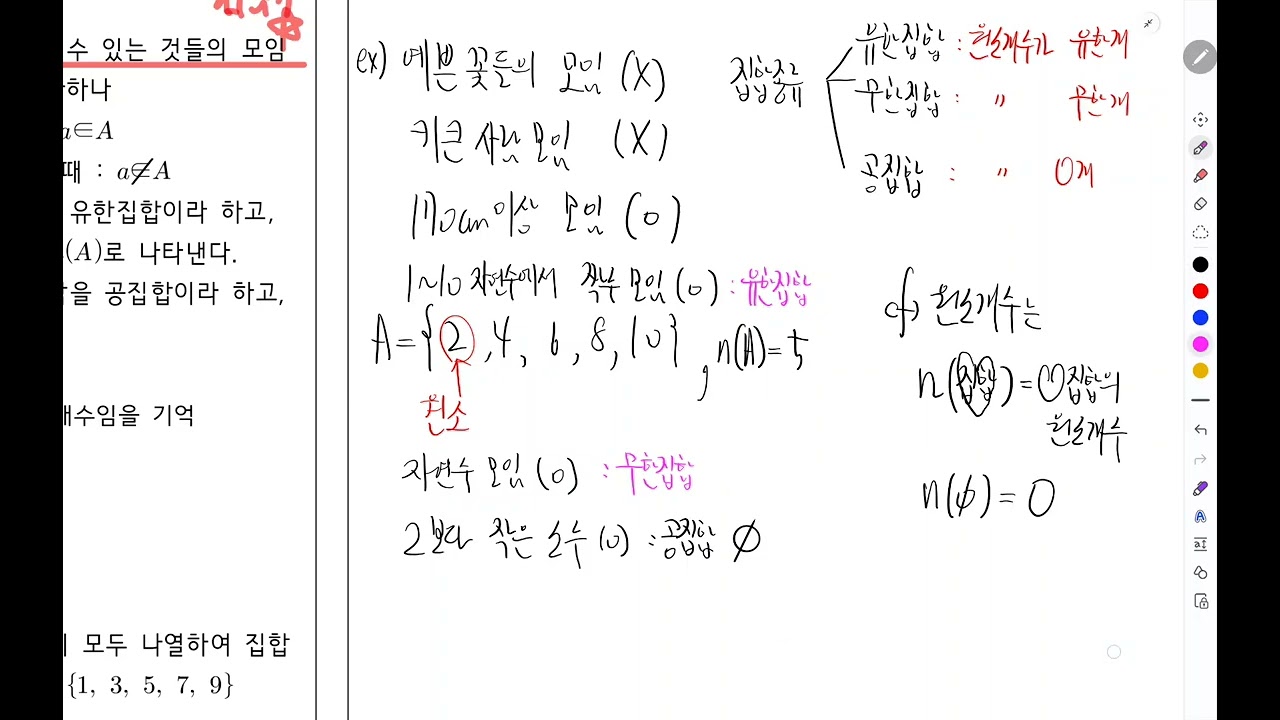 수 있는 것들의 모임
하나
a∈A
때 : a∉A
유한집합이라 하고,
(A)로 나타낸다.
을 공집합이라 하고,
개수임을 기억
모두 나열하여 집합
{1, 3, 5, 7, 9}
ex) 예쁜 꽃들의 모임 (X)
키큰 사람 모임 (X)
170cm이상 모임 (O)
1~10 자연수에서 짝수 모임 (O) : 유한집합
A={2, 4, 6, 8, 10}, n(A)=5
원소
자연수 모임 (O) : 무한집합
2보다 작은 소수 (O) : 공집합 ∅
집합종류
유한집합 : 원소개수가 유한개
무한집합 : 〃 무한개
공집합 : 〃 0개
원소개수는
n(집합)=0집합의
원소개수
n(∅)=0